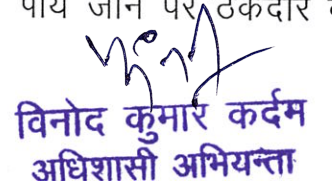 पाये जाने पर ठेकेदार
विनोद कुमार कर्दम
अधिशासी अभियन्ता